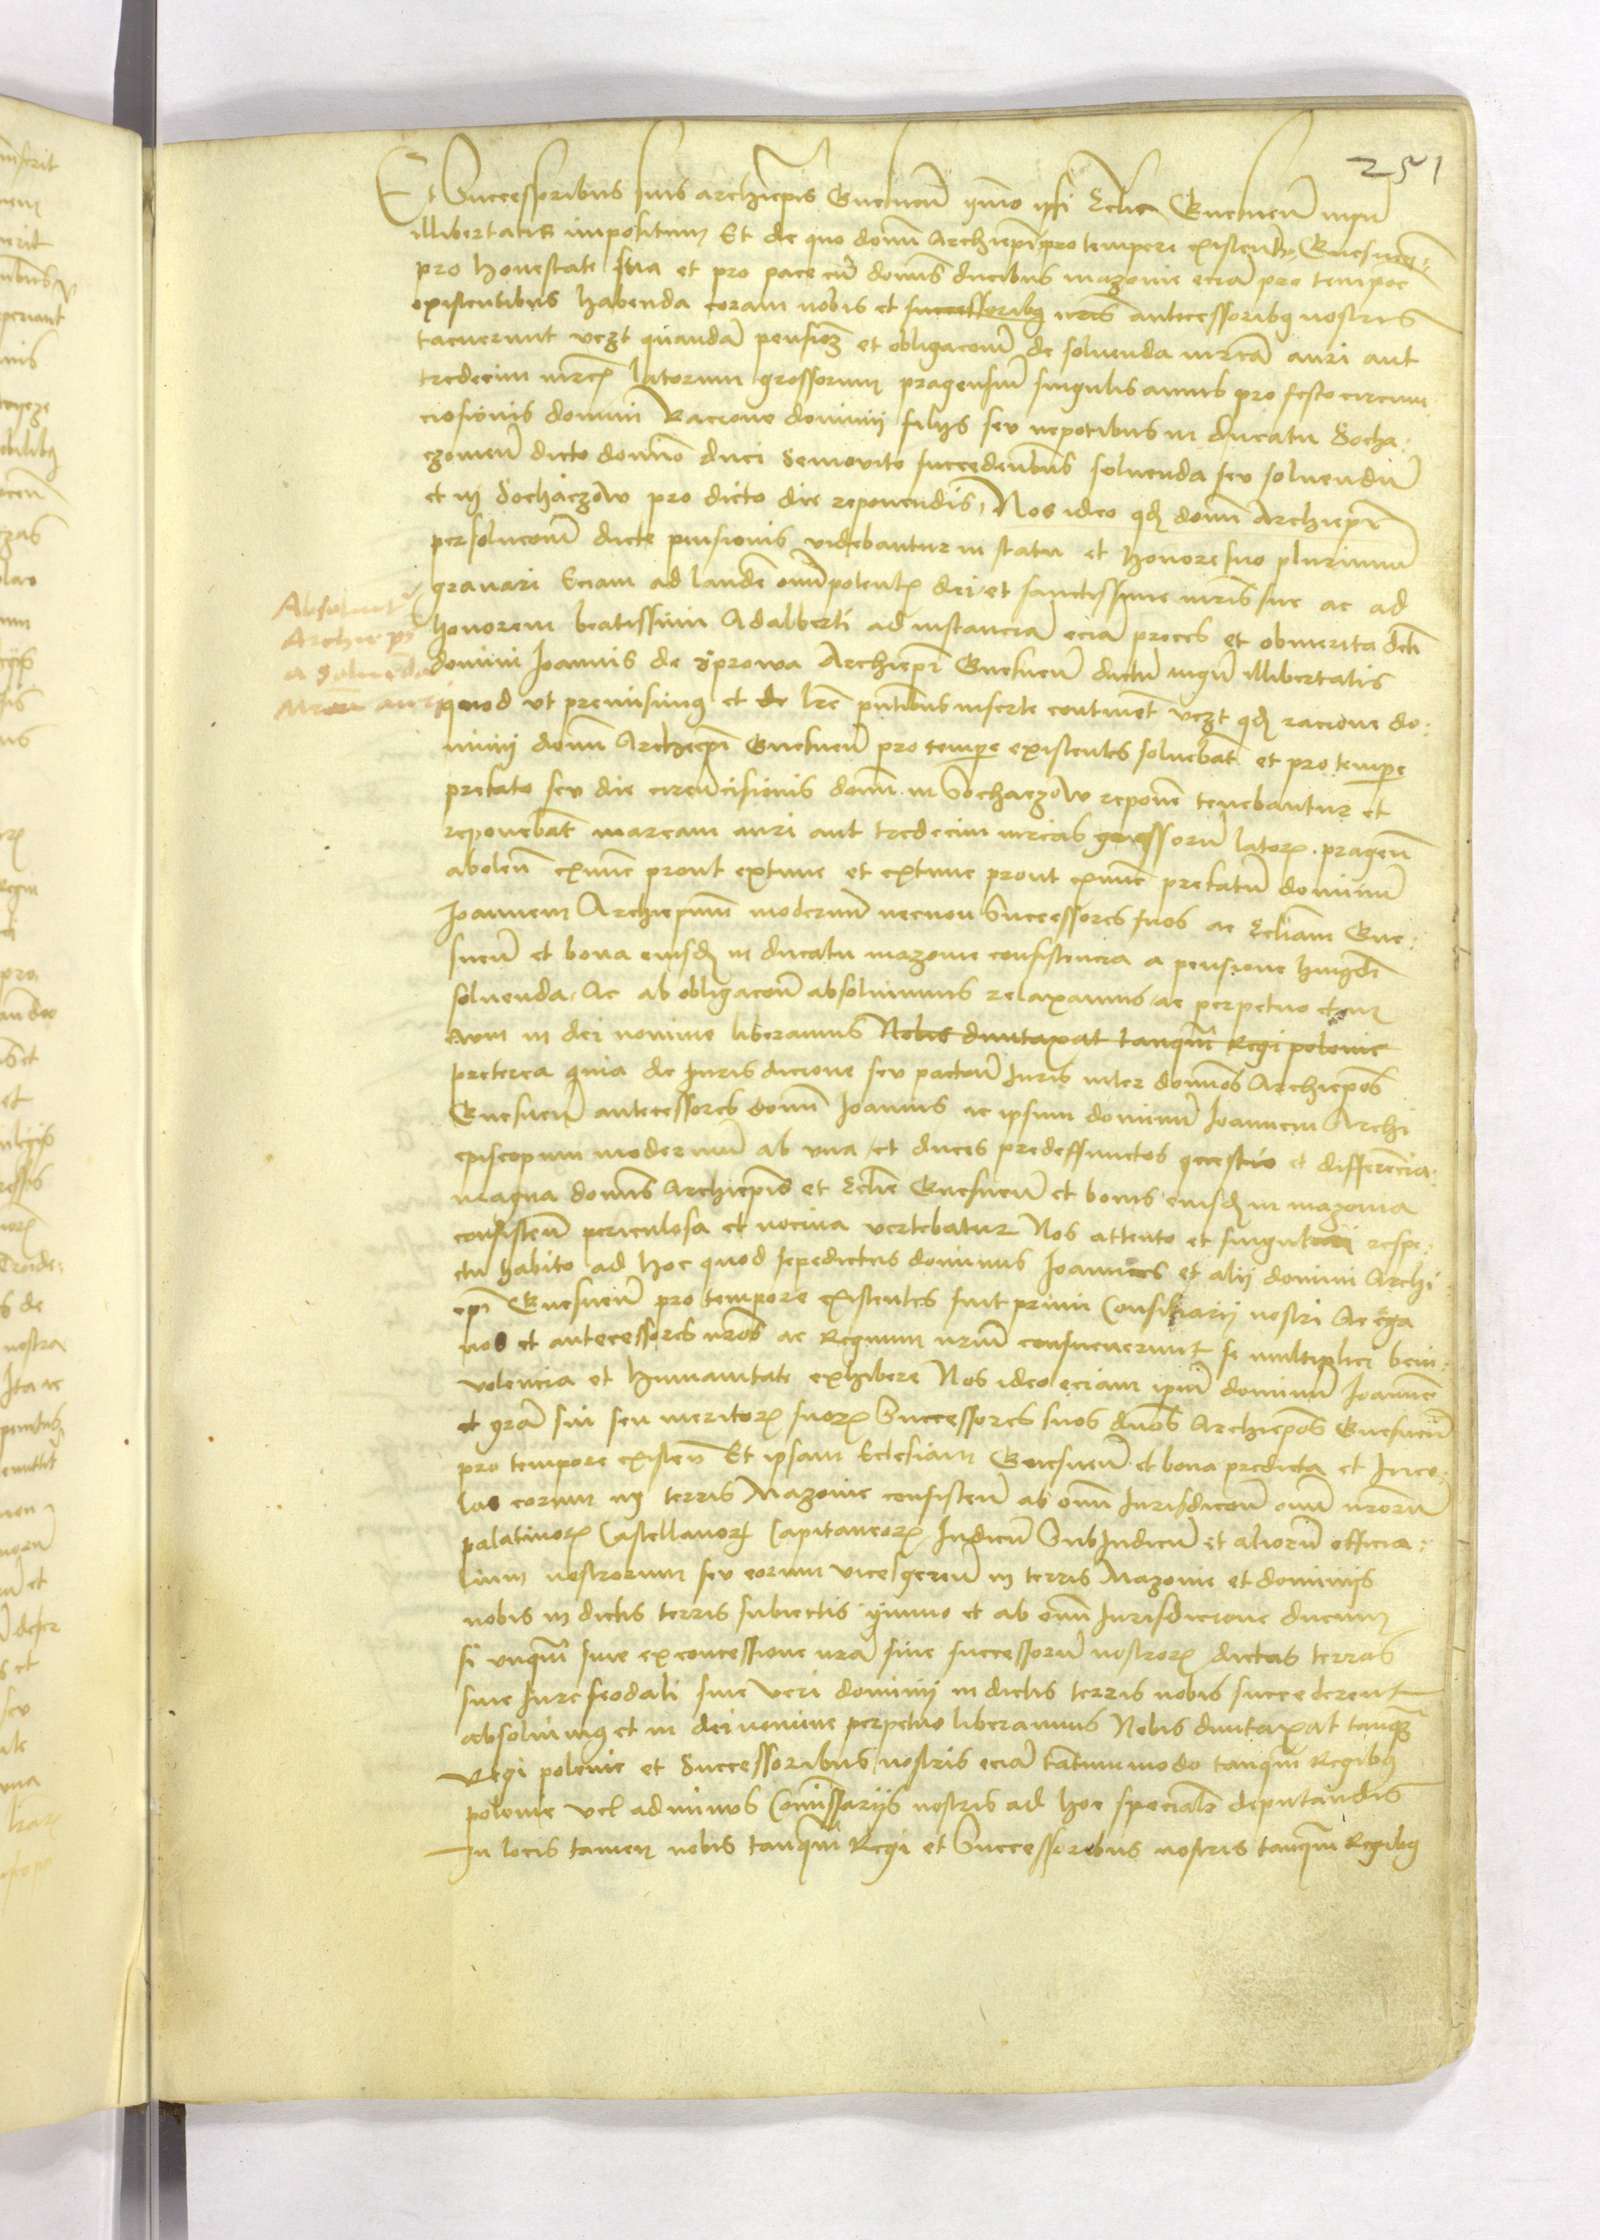 251
Et Successoribus suis archiepis Gnesnen ymo ipsi Ecclie Gnesnen iugu
illibertatis impositum Et de quo domi Archiepi pro tempere existentes Gnesnen
pro honestate sua et pro pace cu domis ducibus mazouie ecia pro tempore
existentibus habenda coram nobis et successoribus nris antecessoribus nostris
tacuerunt vczt quanda pensioem et obligacoem de soluenda mrca auri aut
tredecim mrcis latorum grossorum pragensium singulis annis pro festo circum
cisionis domini Racione dominij filijs seu nepotibus in ducatu Socha
czouien dicto domino duci Semouito succedentibus soluenda seu soluendis
et in Sochaczow pro dicto die reponendis, Nos ideo quod domi Archiepi
persolucoem dicte pensionis videbantur in statu et honore suo plurimum
grauari Eciam ad laudem omipotentis dei et sanctissime mris sue ac ad
honorem beatissimi Adalberti ad instancia ecia preces et ob merita dcti
domini Joannis de Sprowa Archiepi Gnesnen dictu iugu illibertatis
quod vt premisimus et de lre pntibus inserte continet vczt quod racione do
minij domi Archiepi Gnesnen pro tempore existentes soluebat et pro tempore
prefato seu die circucisionis domi in Sochaczow reponere tenebantur et
reponebat marcam auri aut tredecim mrcas grossoru latorum pragen
abolen exnunc prout extunc et extunc prout exnunc prefatu dominu
Joannem Archiepum modernu necnon Successores suos ac Ecliam Gne
snen et bona eiusdem in ducatu mazouie consistencia a pensione huiusmodi
soluenda Ac ab obligacoe absoluimus relaxamus ac perpetuo
euum in dei nomine liberamus Nobis duntaxat tanquam Regi polonie
preterea quia de Jurisdicione seu pacto Juris inter dominos Archiepos
Gnesnen antecessores domi Joannis ac ipsum dominu Joannem Archi
episcopum modernu ab vna et duces predeffunctos questio et differencia
magna domis Archiepis et Eclie Gnesnen et bonis eiusdem in mazouia
consisten periculosa et nociua vertebatur Nos attento et singulari respe
ctu habito ad hoc quod sepedictus dominus Joannes et alij domini Archi
epi Gnesnen pro tempore existentes sunt primi Consiliarij nostri Ac erga
nos et antecessores nros ac Regnum nrum consueuerunt se multiplici beni
volencia et humanitate exhibere Nos ideo eciam ipsum dominu Joannem
et gra sui seu meritorum suorum Successores suos dnos Archiepos Gnesnen
pro tempore existen Et ipsam Eclesiam Gnesnen et bona predicta et Inco
las eorum in terris Mazouie consisten ab omi Jurisdicoe omi nroru
palatinorum Castellanorum Capitaneorum Judicu SubJudicu et alioru officia
lium nostrorum seu eorum vices geren in terris Mazouie et dominijs
nobis in dictis terris subiectis ymmo et ab omi Jurisdicione ducum
si vnquam siue ex concessione nra siue successoru nostrorum dictas terras
siue Jure feodali siue veri dominij in dictis terris nobis succederent
absoluimus et in dei nomine perpetuo liberamus Nobis duntaxat tanquam
Regi polonie et Successoribus nostris ecia tantummodo tanquam Regibus
polonie vel ad minus Comissarijs nostris ad hoc specialiter deputandis
In locis tamen nobis tanquam Regi et Successoribus nostris tanquam Regibus
Absoluit
Archiepi
a soluenda
Mrca auri